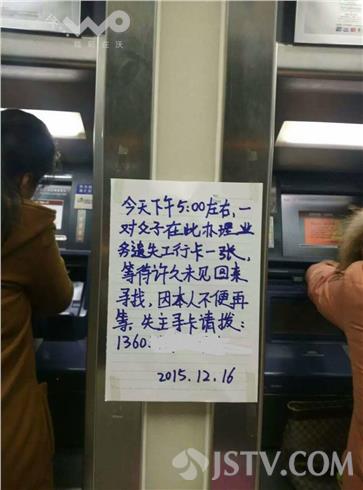 精彩在沃
今天下午5:00左右,一
对父子在此办理业
务遗失工行卡一张,
等待许久未见回来
寻找,因本人不便再
等。失主寻卡请拨:
1360
2015.12.16
JSTV.COM